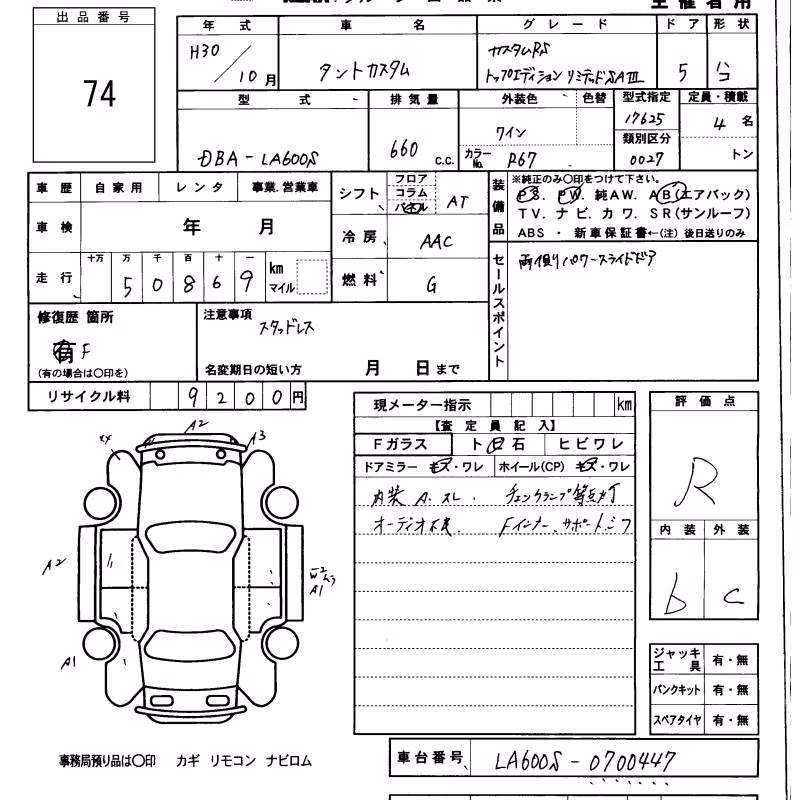 出品番号
74
年式 車名 グレード ドア 形状
H30/10月 タントカスタム カスタムRS
トップエディション リミテッドSAⅢ 5
型式 排気量 外装色 色替 型式指定 定員・積載
DBA-LA600S 660 c.c. ワイン 17625 4名
カラーNo. R67 類別区分 0027 トン
車歴 自家用 レンタ 事業.営業車
シフト フロア コラム パネル AT
装備品 ※純正のみ○印をつけて下さい。
PS. PW. 純AW. AB(エアバック)
TV. ナビ. カワ. SR(サンルーフ)
ABS ・ 新車保証書←(注) 後日送りのみ
車検 年 月
冷房 AAC
走行 十万 万 千 百 十 一
50869 km マイル
燃料 G
セールスポイント 両側パワースライドドア
修復歴 箇所
有 F
(有の場合は○印を)
注意事項
スタッドレス
名変期日の短い方 月 日まで
リサイクル料 9200円
現メーター指示 km
【査定員記入】
Fガラス ト 石 ヒビワレ
ドアミラー キズ・ワレ ホイール(CP) キズ・ワレ
内装 スレ. チェックランプ等点灯
オーディオ不良. Fインナー、サポートシワ
評価点
R
内装 外装
b c
A2
XX A3
A2
W2
A1
A1
ジャッキ工具 有・無
パンクキット 有・無
スペアタイヤ 有・無
事務局預り品は○印 カギ リモコン ナビロム
車台番号 LA600S-0700447